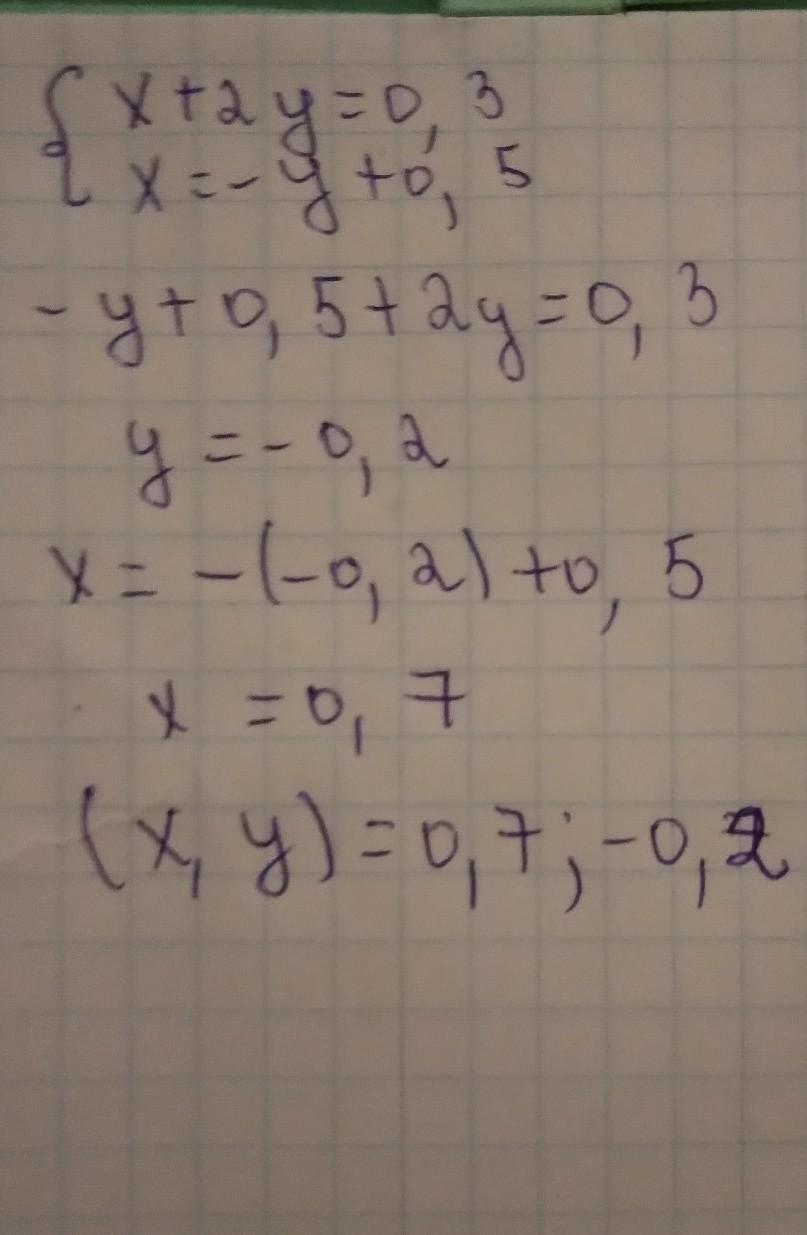 { x+2y=0,3
x=-y+0,5
-y+0,5+2y=0,3
y=-0,2
x=-(-0,2)+0,5
x=0,7
(x,y)=0,7;-0,2